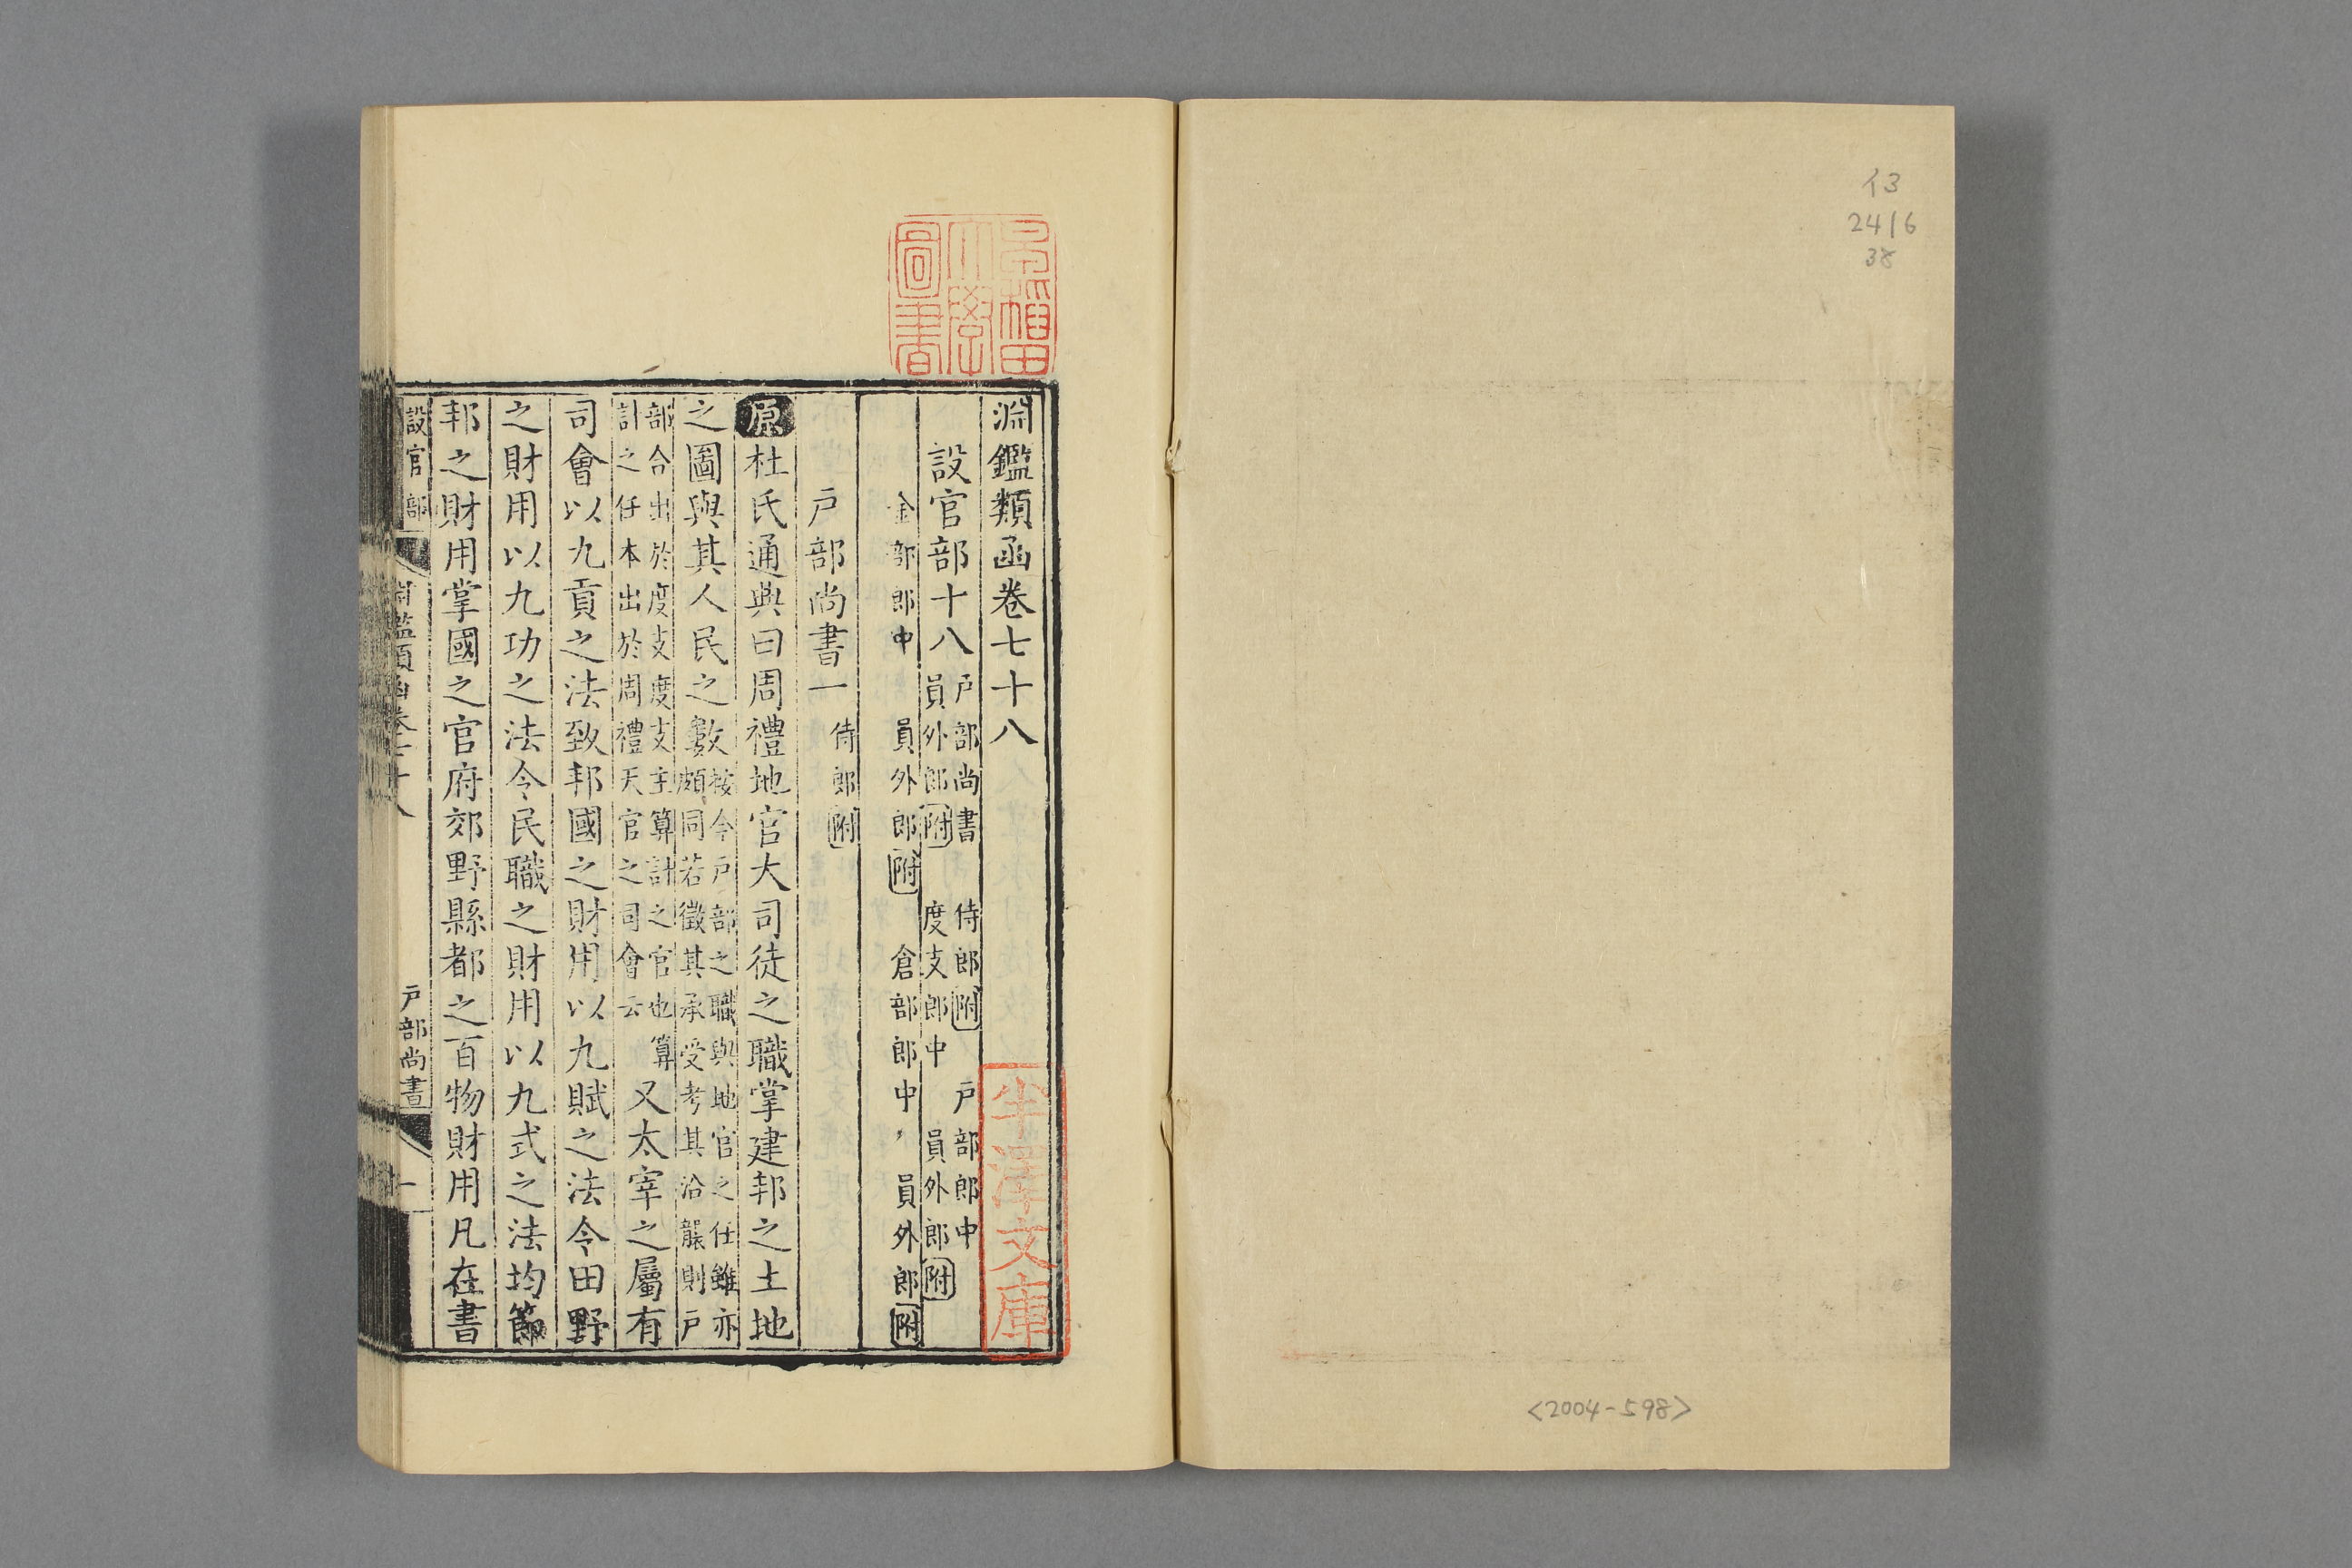 イ3
2416
38
<2004-598>
早稲田大學圖書
半澤文庫
淵鑑類函卷七十八
設官部十八 戶部尚書 侍郎附 戶部郎中
員外郎附 度支郎中 員外郎附
金部郎中 員外郎附 倉部郎中 員外郎附
戶部尚書一 侍郎附
原杜氏通典曰周禮地官大司徒之職掌建邦之土地
之圖與其人民之數按今戶部之職與地官之任雖亦
頗同若徵其承受考其沿襲則戶
部合出於度支度支主算計之官也算
計之任本出於周禮天官之司會云又太宰之屬有
司會以九貢之法致邦國之財用以九賦之法令田野
之財用以九功之法令民職之財用以九式之法均節
邦之財用掌國之官府郊野縣都之百物財用凡在書
設官部 淵鑑類函卷七十八 戶部尚書 一